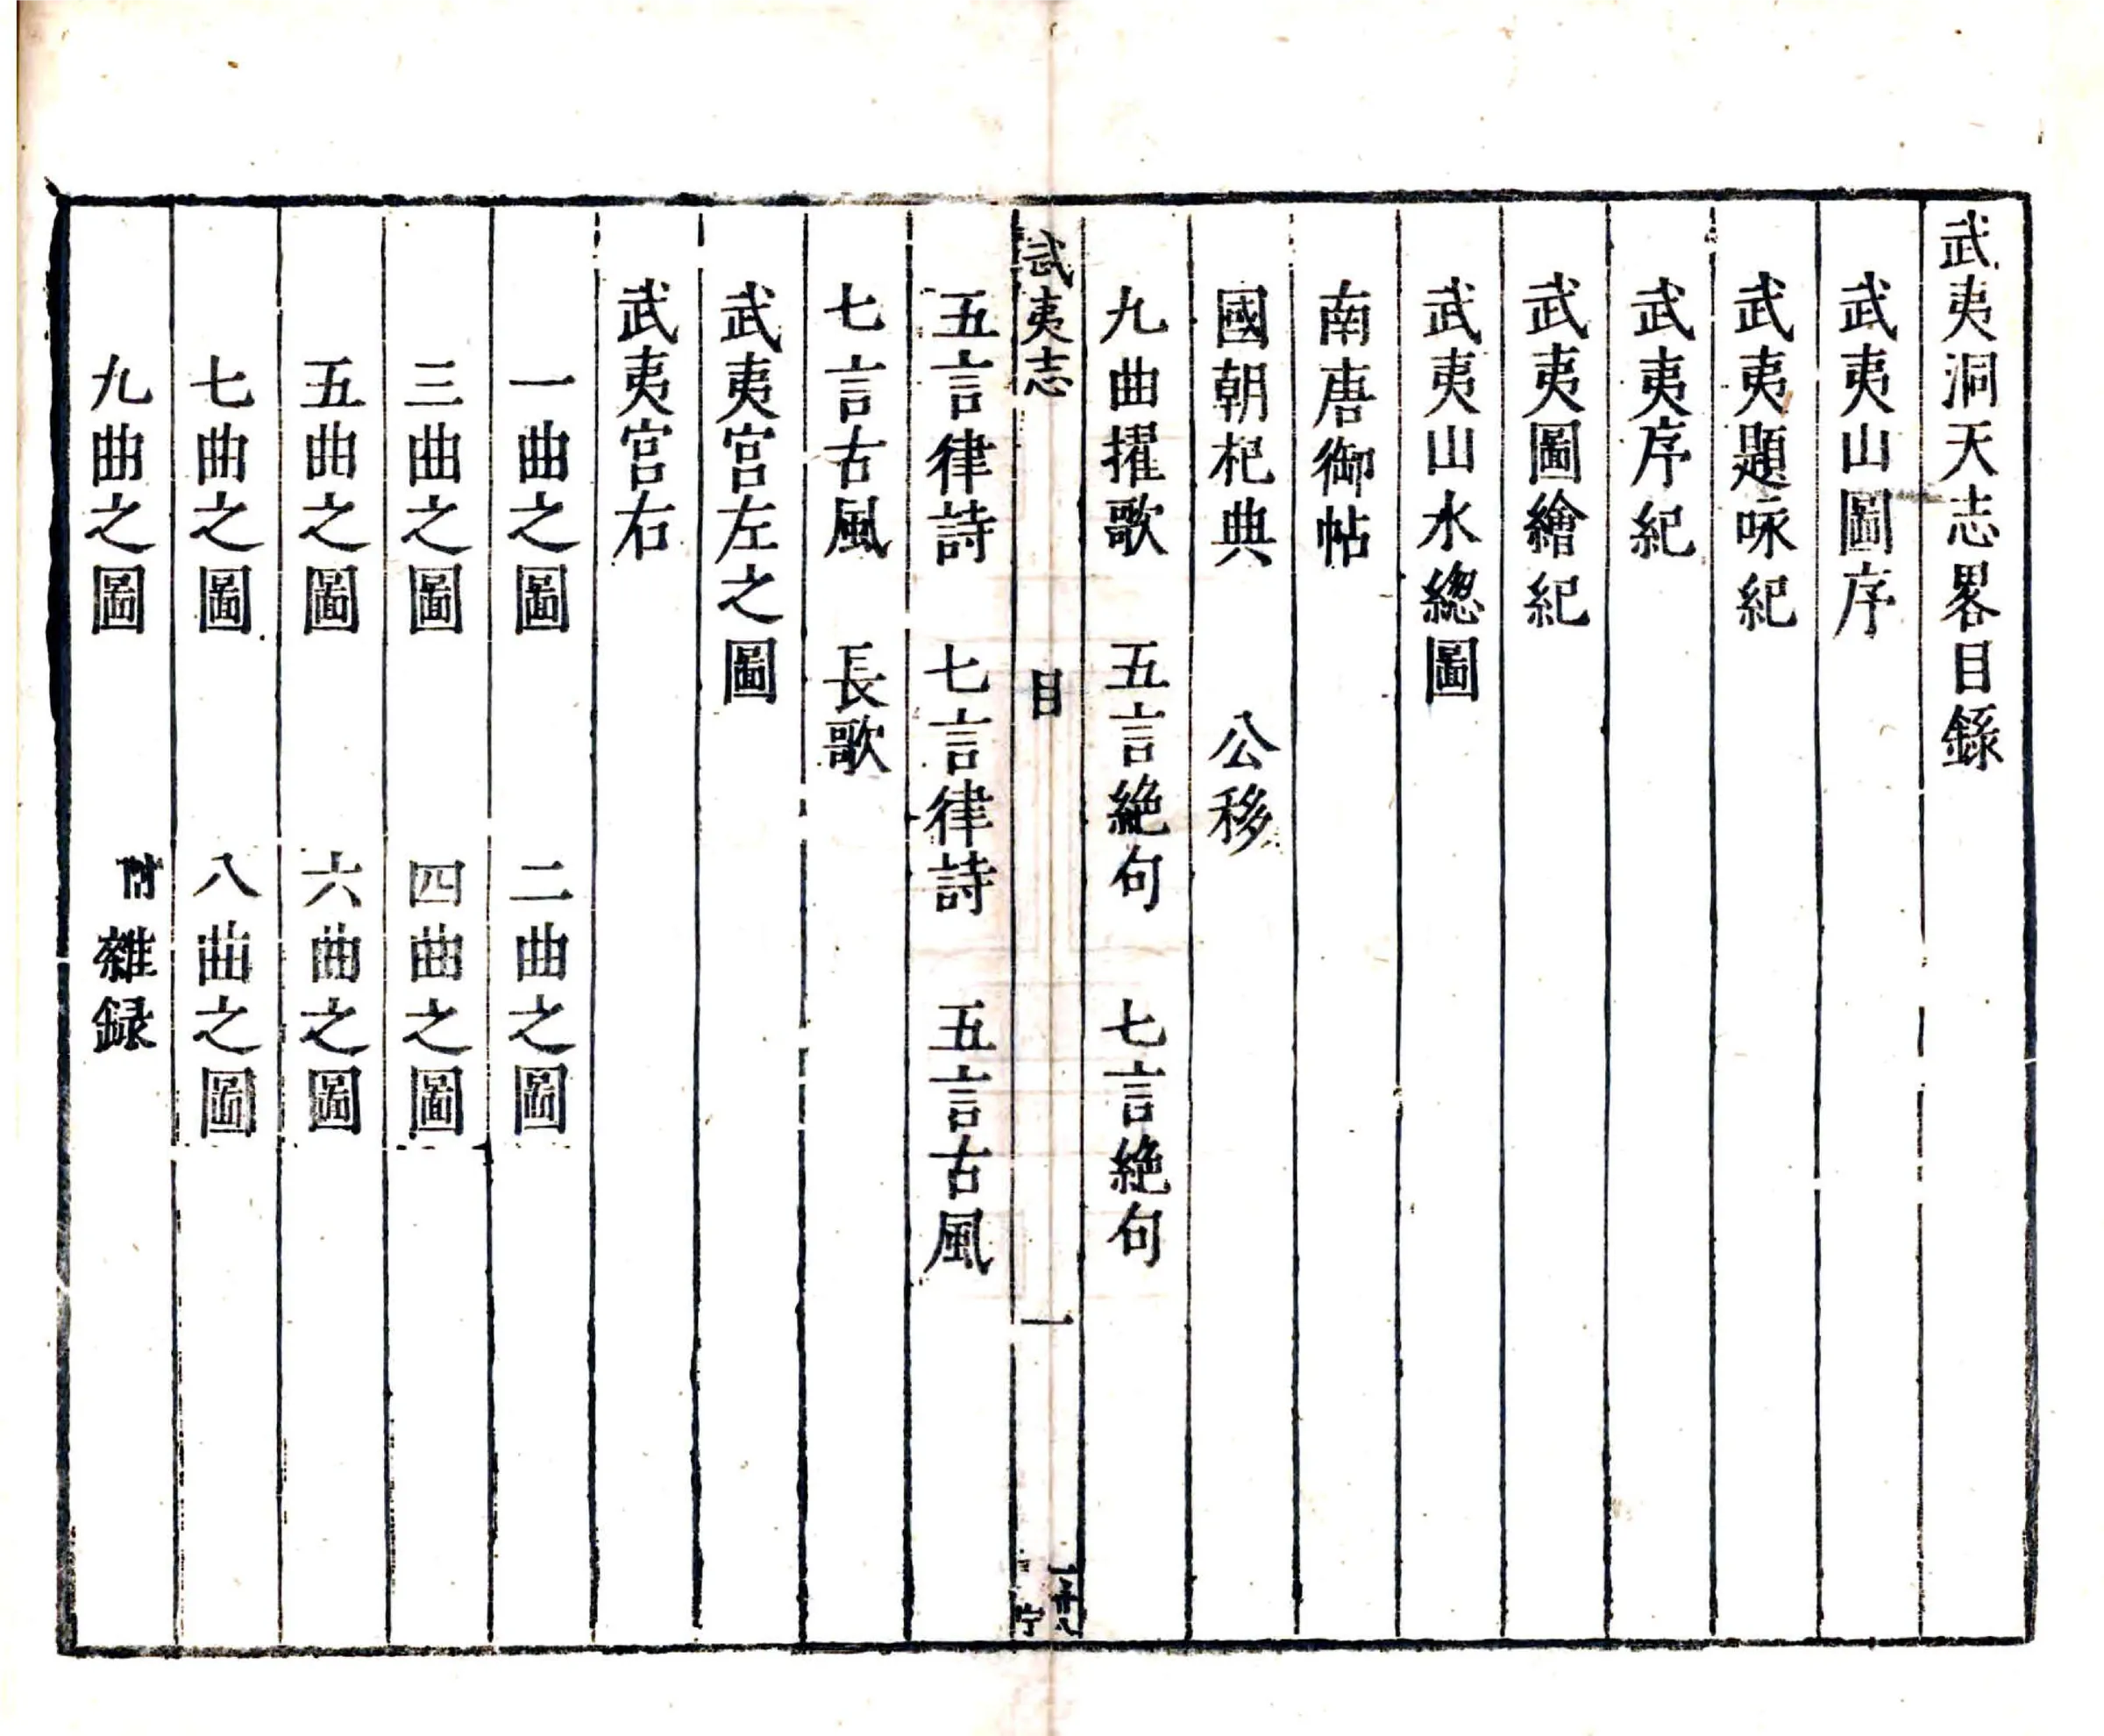 武夷洞天志畧目錄
武夷山圖序
武夷題咏紀
武夷序紀
武夷圖繪紀
武夷山水緫圖
南唐御帖
國朝祀典　公移
九曲擢歌　五言絶句　七言絶句
武夷志　目　一
五言律詩　七言律詩　五言古風
七言古風　長歌
武夷宫左之圖
武夷宫右
一曲之圖　二曲之圖
三曲之圖　四曲之圖
五曲之圖　六曲之圖
七曲之圖　八曲之圖
九曲之圖　附雜録